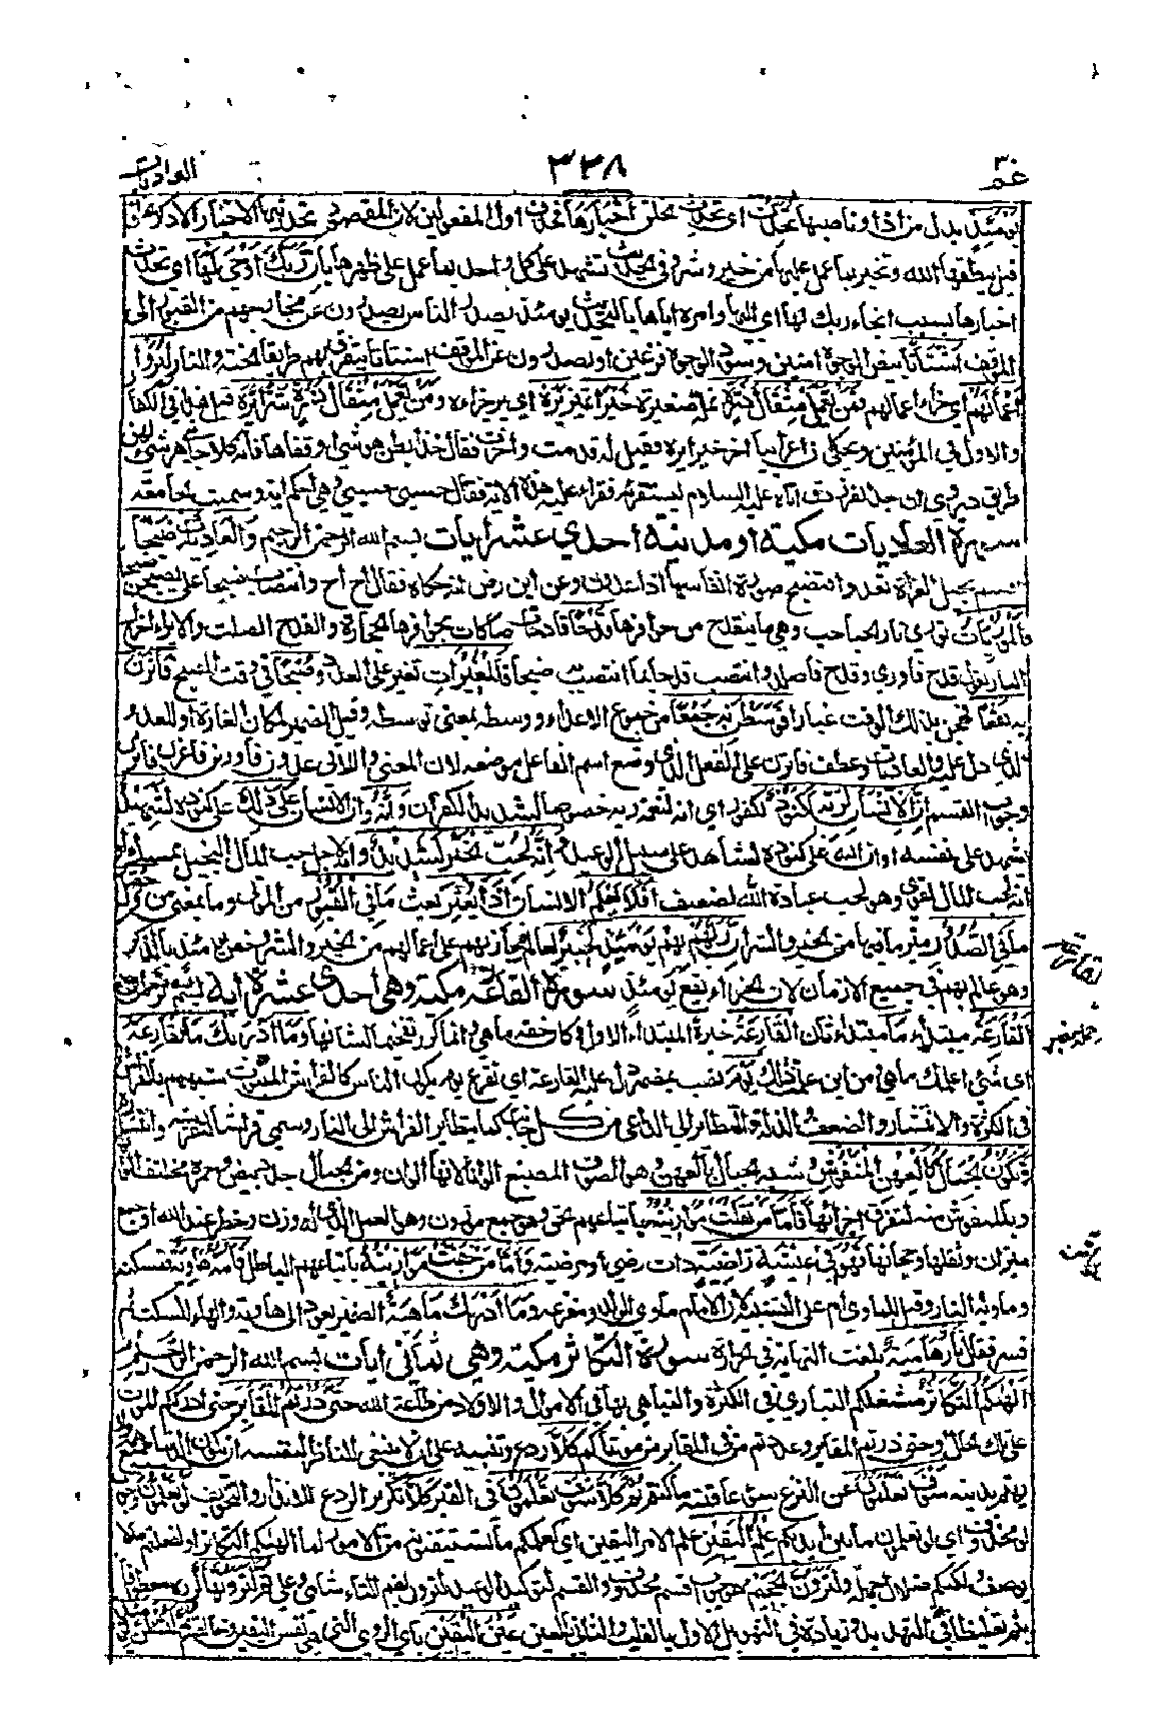 ٣٠ عم
٣٣٨
العاديات
يومئذ بدل من اذا وناصبها تحدث اى تحدث الخلق اخبارها فحذف اول المفعولين لان المقصود تحديثها الاخبار لا ذكر الخلق
قيل ينطقها الله وتخبر بما عمل عليها من خير وشر وفى الحديث تشهد على كل واحد بما عمل على ظهرها بان ربك اوحى لها اى تحدث
اخبارها بسبب ايحاء ربك لها اى اليها وامره اياها بالتحديث يومئذ يصدر الناس يصدرون عن مخارجهم من القبور الى
الموقف اشتاتا بيض الوجوه امنين وسود الوجوه فزعين او يصدرون عن الموقف اشتاتا يتفرق بهم طريقا الجنة والنار ليروا
اعمالهم اى جزاء اعمالهم فمن يعمل مثقال ذرة نملة صغيرة خيرا يره اى ير جزاءه ومن يعمل مثقال ذرة شرا يره قيل هذا فى الكفار
والاول فى المؤمنين ويحكى ان اعرابيا اخر خيرا يره فقيل له قدمت واخرت فقال خذا بطن هرشى او قفاها فانه كلا جانبى هرشى لهن
طريق وروى ان جد الفرزدق اتاه عليه السلام ليستقرئه فقرأ عليه هذه الاية فقال حسبى حسبى وهى احكم اية وسميت الجامعة
سورة العاديات مكية او مدنية احدى عشر ايات بسم الله الرحمن الرحيم والعاديات ضبحا
اقسم بخيل الغزاة تعدو فتضبح والضبح صوت انفاسها اذا عدون وعن ابن رض انه حكاه فقال اح اح وانتصاب ضبحا على يضبحن ضبحا
فالموريات تورى نار الحباحب وهى ما ينقدح من حوافرها قدحا قادحات صاكات بحوافرها الحجارة والقدح الصك والايراء اخراج
النار يقال قدح فاورى وقدح فاصلد وانتصب قدحا بما انتصب به ضبحا فالمغيرات تغير على العدو صبحا فى وقت الصبح فاثرن
به نقعا فهيجن بذلك الوقت غبارا فوسطن به جمعا من جموع الاعداء ووسطه بمعنى توسطه وقيل الضمير لمكان الغارة او للعدو
الذى دل عليه والعاديات وعطف فاثرن على الفعل الذى وضع اسم الفاعل موضعه لان المعنى واللاتى عدون فاورين فاغرن فاثرن
وجواب القسم ان الانسان لربه لكنود لكفور اى انه لنعمة ربه خصوصا لشديد الكفران وانه وان الانسان على ذلك على كنوده لشهيد
يشهد على نفسه او وان الله على كنوده لشاهد على سبيل الوعيد وانه لحب الخير لشديد وانه لاجل حب المال لبخيل ممسك او
انه لحب المال لقوى وهو لحب عبادة الله لضعيف افلا يعلم الانسان اذا بعثر بعث ما فى القبور من الموتى وما بمعنى من وحصل
ما فى الصدور ميز ما فيها من الخير والشر ان ربهم بهم يومئذ لخبير لعالم فيجازيهم على اعمالهم من الخير والشر وخص يومئذ بالذكر
وهو عالم بهم فى جميع الازمان لان الجزاء يقع يومئذ سورة القارعة مكية وهى احدى عشرة اية
القارعة مبتدأ ما مبتدأ ثان القارعة خبره والجملة خبر المبتدأ الاول وكان حقه ما هى وانما كرر تفخيما لشانها وما ادراك ما القارعة
اى شئ اعلمك ما هى ومن اين علمت ذلك يوم نصب بمضمر دل عليه القارعة اى تقرع يوم يكون الناس كالفراش المبثوث شبههم بالفراش
فى الكثرة والانتشار والضعف والذلة والتطاير الى الداعى من كل جانب كما يتطاير الفراش الى النار وسمى فراشا لتفرشه وانتشاره
وتكون الجبال كالعهن المنفوش شبه الجبال بالعهن وهو الصوف المصبغ الوانا لانها الوان ومن الجبال جدد بيض وحمر مختلف الوانها
وبالمنفوش منه لتفرق اجزائها فاما من ثقلت موازينه باتباعهم الحق وهو جمع موزون وهو العمل الذى له وزن وخطر عند الله او جمع
ميزان وثقلها رجحانها فهو فى عيشة راضية ذات رضى او مرضية واما من خفت موازينه باتباعهم الباطل فامه هاوية فمسكنه
وماويه النار وقيل للماوى ام على التشبيه لان الام ماوى الولد ومفزعه وما ادراك ماهيه الضمير يعود الى هاوية والهاء للسكت ثم
فسر فقال نار حامية بلغت النهاية فى الحرارة سورة التكاثر مكية وهى ثمانى ايات بسم الله الرحمن الرحيم
الهٰكم التكاثر شغلكم التبارى فى الكثرة والتباهى بها فى الاموال والاولاد عن طاعة الله حتى زرتم المقابر حتى ادرككم الموت
على تلك الحال او حتى زرتم المقابر وعددتم من فى المقابر من موتاكم كلا ردع وتنبيه على انه لا ينبغى للناظر لنفسه ان تكون الدنيا جميع همه
ولا يهتم بدينه سوف تعلمون عند النزع سوء عاقبة ما كنتم عليه ثم كلا سوف تعلمون فى القبور كلا تكرير الردع للانذار والتخويف لو تعلمون جواب
لو محذوف اى لو تعلمون ما بين ايديكم علم اليقين علم الامر اليقين اى كعلمكم ما تستيقنونه من الامور لما الهاكم التكاثر او لفعلتم ما لا
يوصف ولكنكم ضلال جهلة ولترون الجحيم هو جواب قسم محذوف والقسم لتوكيد الوعيد لترون بضم التاء شامى وعلى ثم لترونها